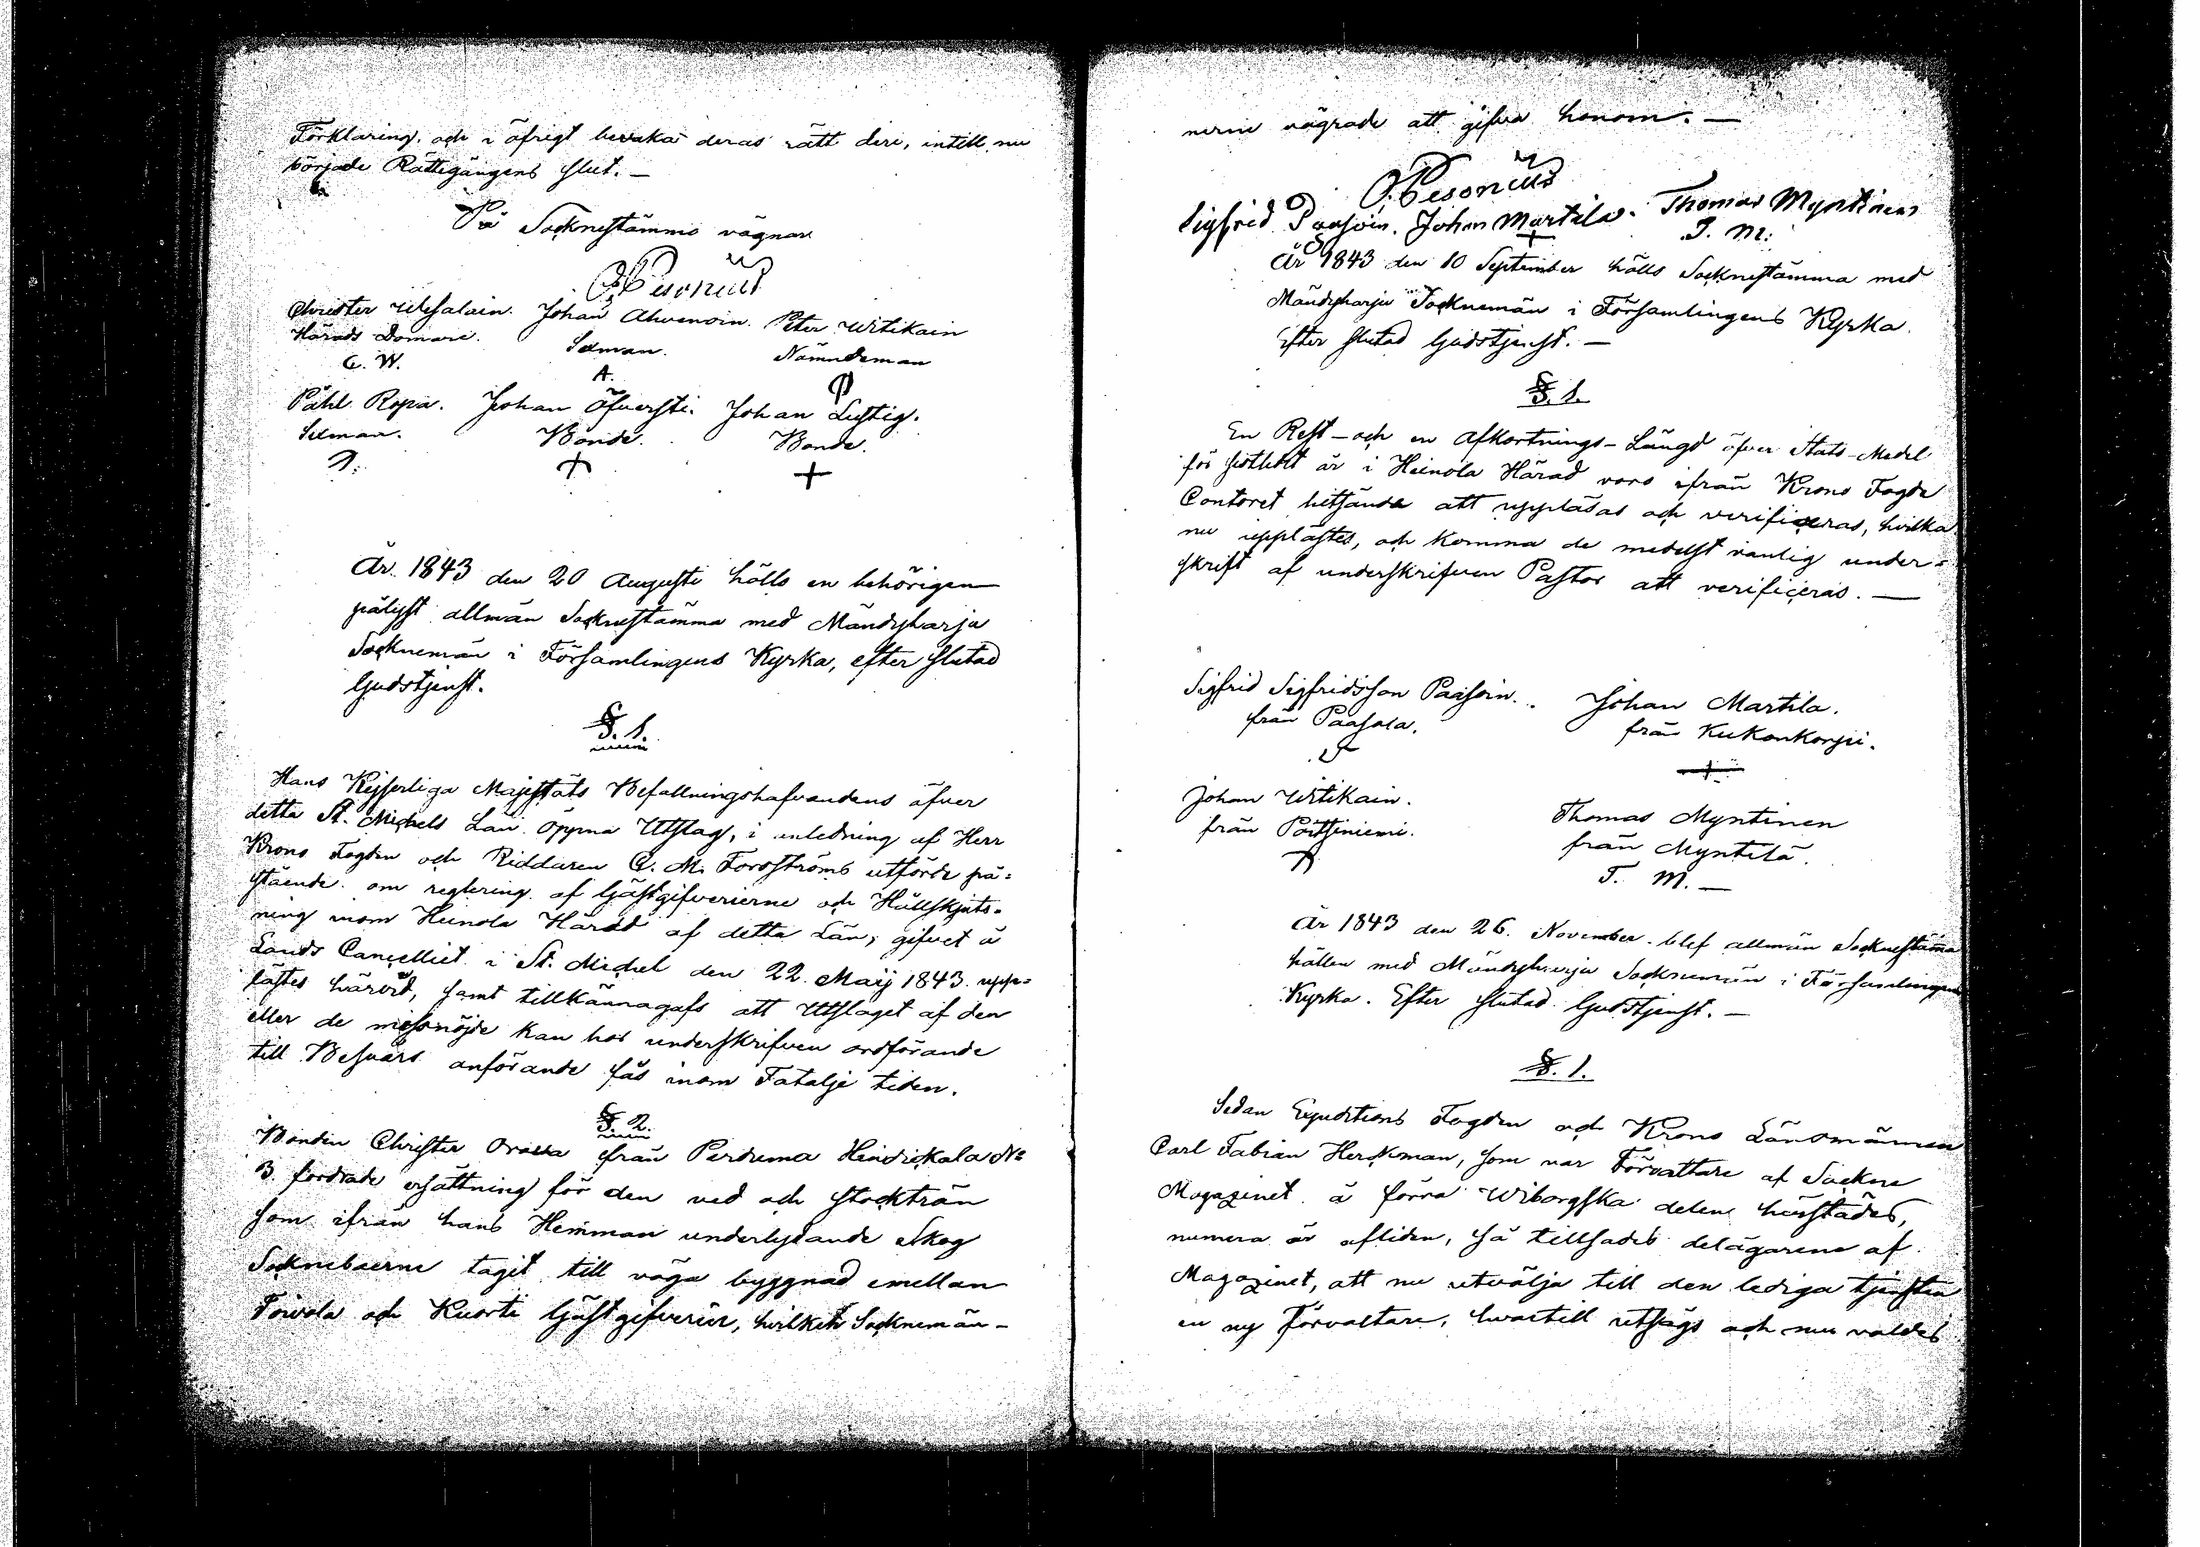 Förklaring, och i öfrigt bevaka deras rätt deri, intill nu
började Rättegångens slut. —
På Socknestämmo vägnar
O. Pesonius
Christer Wesalain. Johan Ahvenoin. Peter Witikain
Härads Domare. Sexman. Nämndeman
C. W. A. P
Påhl Ropa. Johan Öfversti. Johan Lustig.
Sexman. Bonde. Bonde.
+ +
År 1843 den 20 Augusti hölls en behörigen
pålyst allmän Socknestämma med Mändyharju
Socknemän i Församlingens Kyrka, efter slutad
Gudstjenst.
§. 1.
Hans Kejserliga Majestäts Befallningshafvandens öfver
detta St. Michels Län öppna Utslag, i anledning af Herr
Krono Fogden och Riddaren C. M. Forsströms utförde på-
stående om reglering af Gästgifverierne och Hållskjuts-
ning inom Heinola Härad af detta Län, gifvet å
Lands Cancelliet i St. Michel den 22 Maij 1843 upp-
lästes härvid, samt tillkännagafs att Utslaget af den
eller de missnöjde kan hos underskrifven ordförande
till Besvärs anförande fås inom Fatalje tiden.
§. 2.
Bonden Christer Orassa från Pertuma Heindrickala No
3 fordrade ersättning för den ved och stockträn
som ifrån hans Hemman underlydande Skog
Sockneboerne tagit till väga byggnad emellan
Toivola och Kuorti Gästgifverier, hvilket Socknemän-
nerne vägrade att gifva honom. —
O. Pesonius
Sigfrid Paasoin. Johan Martila. Thomas Myntinen
+ T. M.
År 1843 den 10 September hölls Socknestämma med
Mändyharju Socknemän i Församlingens Kyrka.
Efter slutad Gudstjenst. —
§. 1.
En Rest- och en Afkortnings-Längd öfver Stats-Medel
för sistledet år i Heinola Härad voro ifrån Krono Fogde
Contoret hitsände att uppläsas och verificeras, hvilka
nu upplästes, och komma de medelst vanlig under-
skrift af underskrifven Pastor att verificeras. —
Sigfrid Sigfridsson Paasoin. Johan Martila.
från Paasola. från Kukonkorpi.
+
Johan Witikain. Thomas Myntinen
från Pöitsiniemi. från Myntilä.
T. M. —
År 1843 den 26. November blef allmän Socknestämma
hållen med Mändyharju Socknemän i Församlingens
Kyrka. Efter slutad Gudstjenst. —
§. 1.
Sedan Expeditions Fogden och Krono Länsmannen
Carl Fabian Herckman, som var Förvaltare af Sockne
Magazinet å förra Wiborgska delen härstädes,
numera är afliden, så tillsades delägarene af
Magazinet, att nu utvälja till den lediga tjensten
en ny Förvaltare, hvartill utsågs och nu valdes